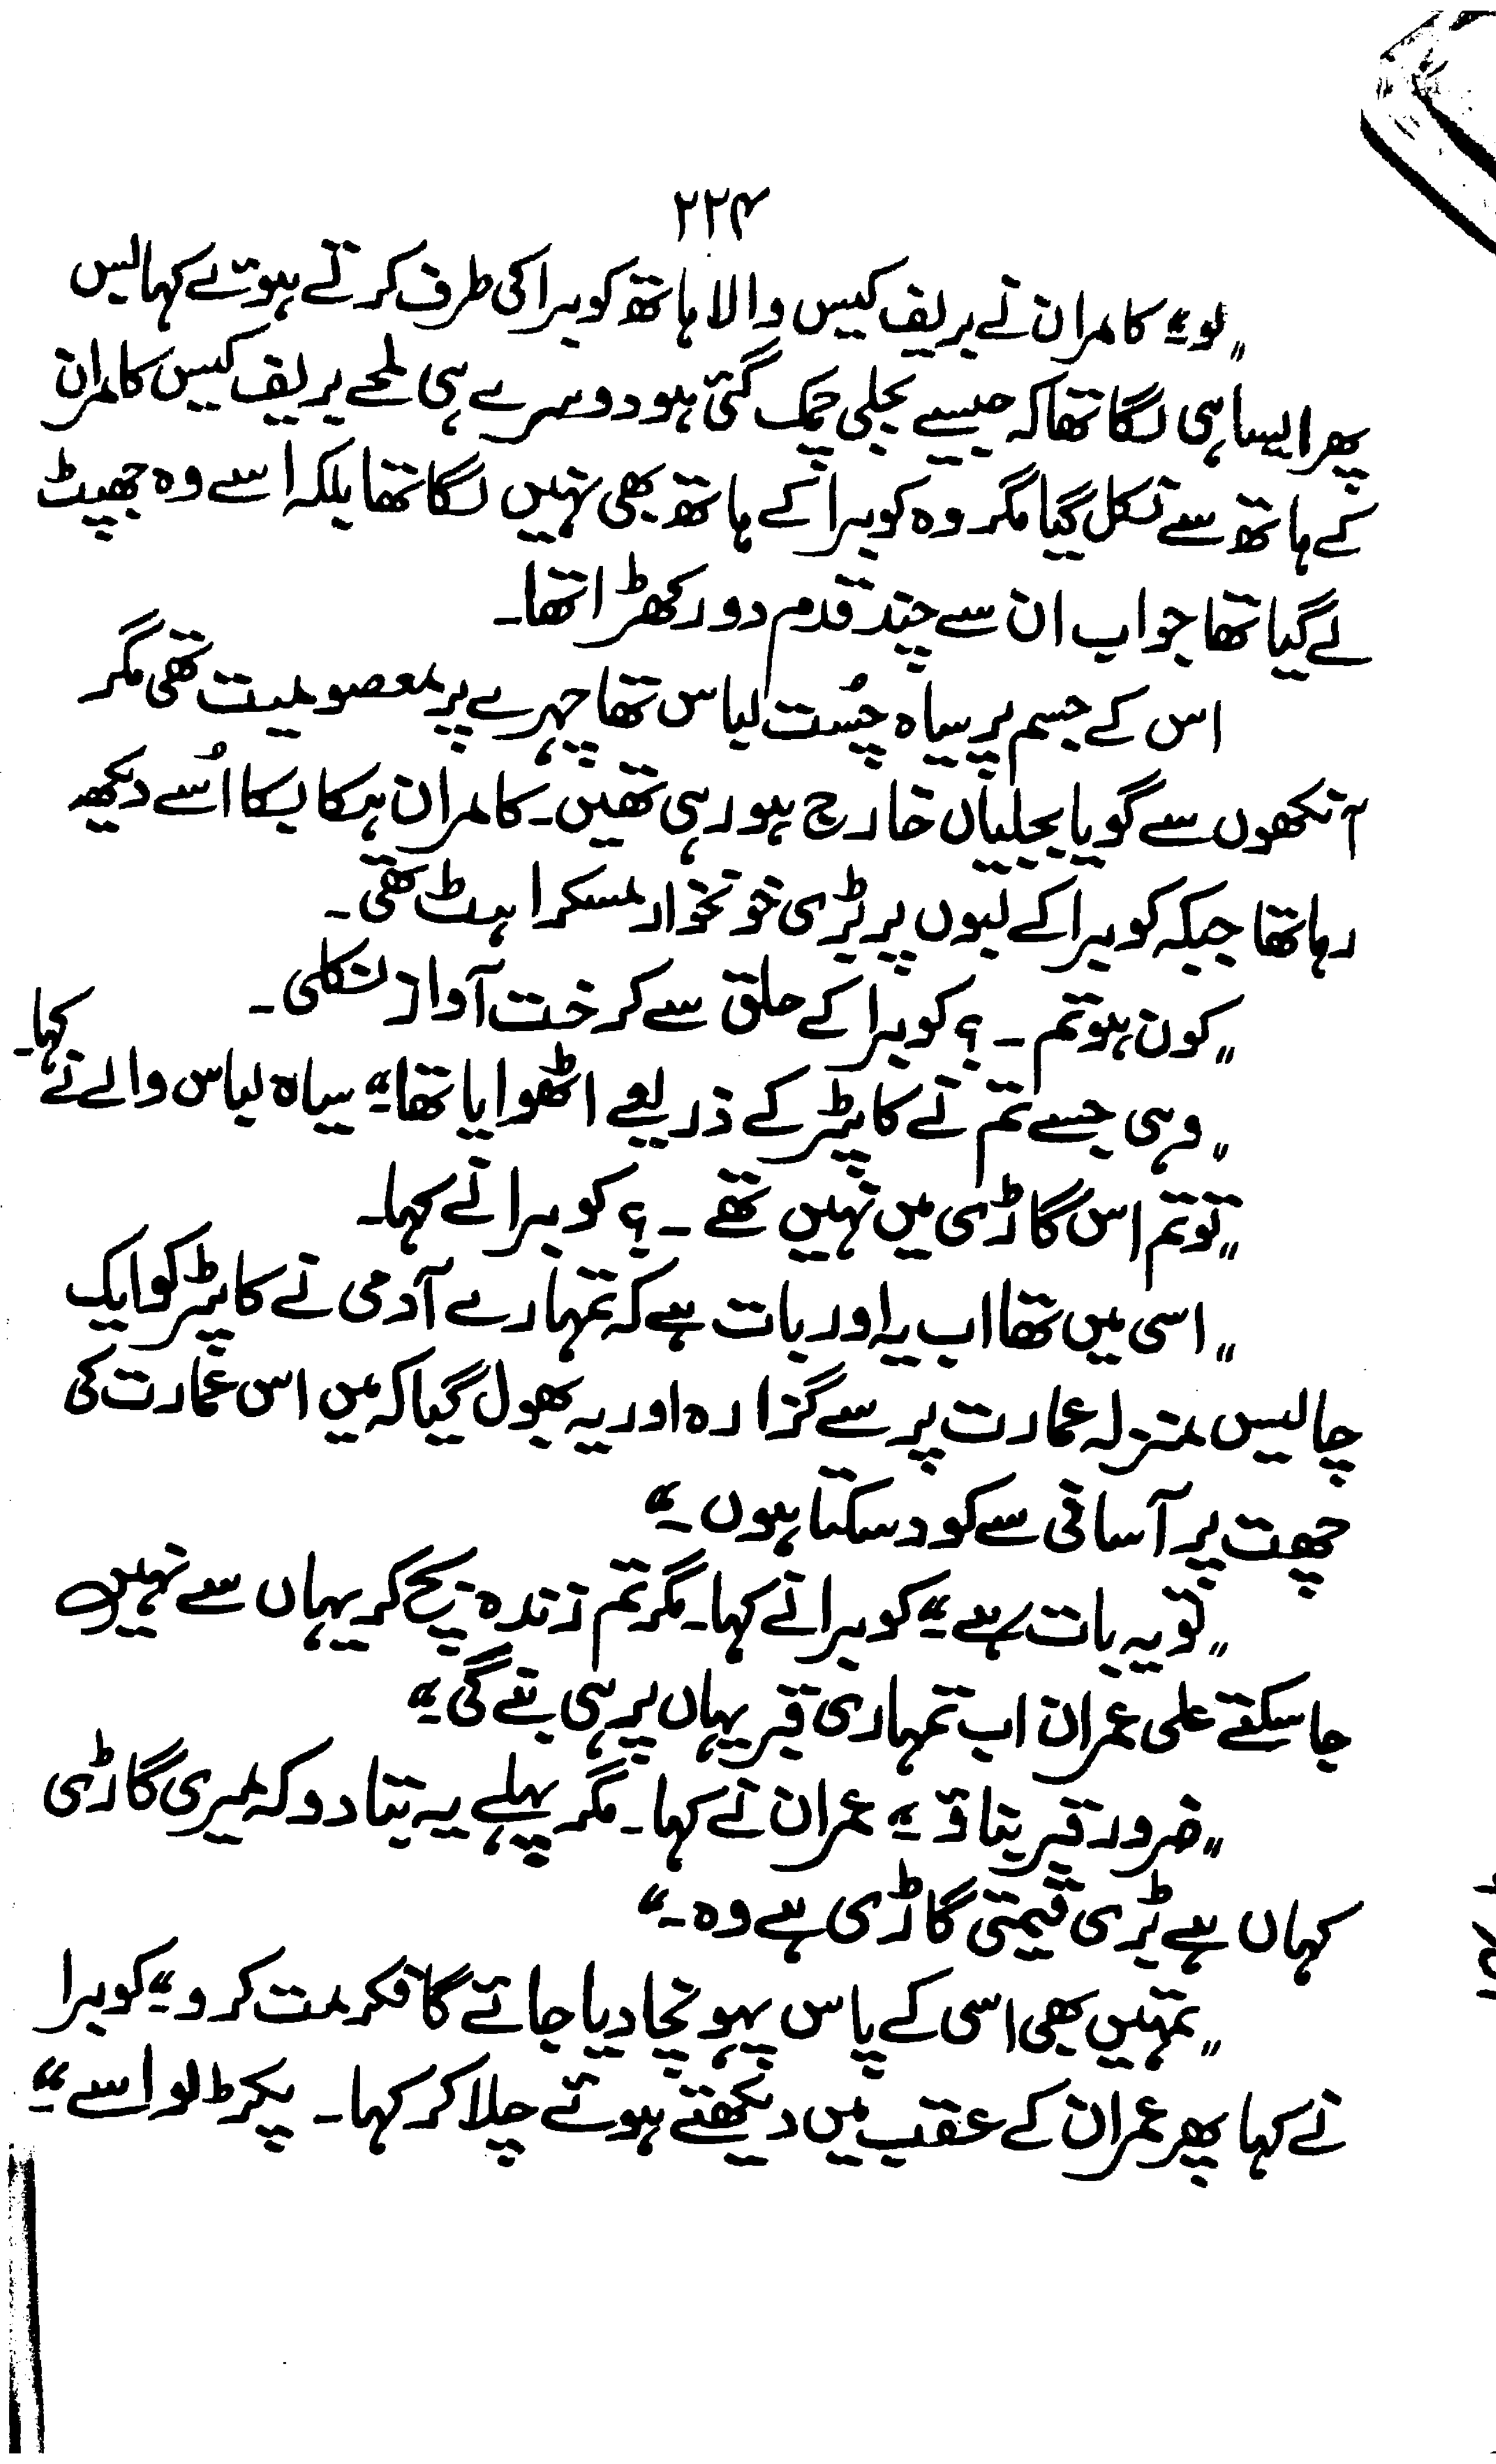 ۲۲۴
"لو" کامران نے بریف کیس والا ہاتھ کوبرا کی طرف کرتے ہوئے کہا بس
پھر ایسا ہی لگا تھا کہ جیسے بجلی چمک گئی ہو دوسرے ہی لمحے بریف کیس کامران
کے ہاتھ سے نکل گیا مگر وہ کوبرا کے ہاتھ بھی نہیں لگا تھا بلکہ اسے وہ جھپٹ
لے گیا تھا جو اب ان سے چند قدم دور کھڑا تھا۔
اس کے جسم پر سیاہ چُست لباس تھا چہرے پر معصومیت تھی مگر
آنکھوں سے گویا بجلیاں خارج ہو رہی تھیں۔ کامران ہکا بکا اُسے دیکھ
رہا تھا جبکہ کوبرا کے لبوں پر بڑی خونخوار مسکراہٹ تھی۔
"کون ہو تم ۔ ؟ کوبرا کے حلق سے کرخت آواز نکلی۔
"وہی جسے تم نے کاپٹر کے ذریعے اٹھوایا تھا" سیاہ لباس والے نے کہا۔
"تو تم اس گاڑی میں نہیں تھے ۔ ؟ کوبرا نے کہا۔
"اسی میں تھا اب یہ اور بات ہے کہ تمہارے آدمی نے کاپٹر کو ایک
چالیس منزلہ عمارت پر سے گزارہ اور یہ بھول گیا کہ میں اس عمارت کی
چھت پر آسانی سے کود سکتا ہوں۔"
"تو یہ بات ہے" کوبرا نے کہا۔ مگر تم زندہ بچ کر یہاں سے نہیں
جا سکتے علی عمران اب تمہاری قبر یہاں پر ہی بنے گی۔"
"ضرور قبر بناؤ" عمران نے کہا۔ مگر پہلے یہ بتا دو کہ میری گاڑی
کہاں ہے بڑی قیمتی گاڑی ہے وہ۔"
"تمہیں بھی اسی کے پاس پہونچا دیا جائے گا فکر مت کرو" کوبرا
نے کہا پھر عمران کے عقب میں دیکھتے ہوئے چلا کر کہا۔ پکڑ لو اسے"